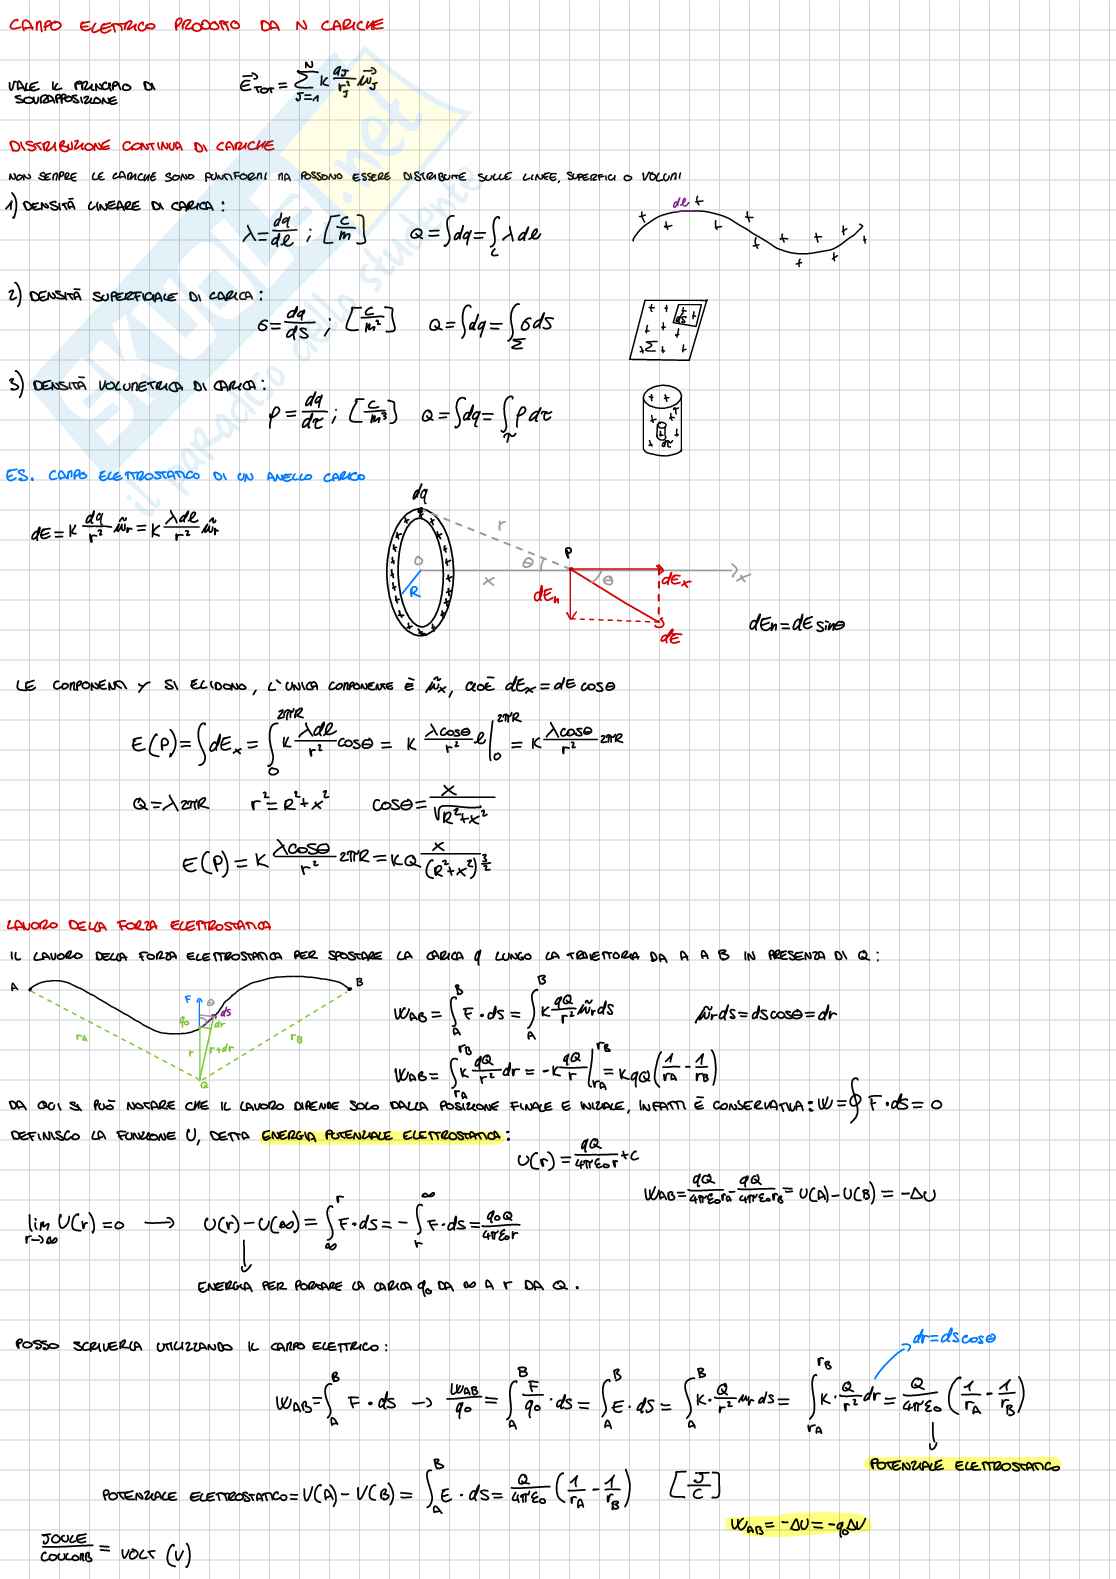 CAMPO ELETTRICO PRODOTTO DA N CARICHE
VALE IL PRINCIPIO DI SOVRAPPOSIZIONE
E⃗_TOT = Σ_{J=1}^{N} K q_J/r_J² u⃗_J
DISTRIBUZIONE CONTINUA DI CARICHE
NON SEMPRE LE CARICHE SONO PUNTIFORMI MA POSSONO ESSERE DISTRIBUITE SULLE LINEE, SUPERFICI O VOLUMI
1) DENSITÀ LINEARE DI CARICA:
λ = dq/dl ; [C/m] Q = ∫dq = ∫_L λ dl
dl
2) DENSITÀ SUPERFICIALE DI CARICA:
σ = dq/dS ; [C/m²] Q = ∫dq = ∫_Σ σ dS
dS
Σ
3) DENSITÀ VOLUMETRICA DI CARICA:
ρ = dq/dτ ; [C/m³] Q = ∫dq = ∫_τ ρ dτ
τ
dτ
ES. CAMPO ELETTROSTATICO DI UN ANELLO CARICO
dE = K dq/r² u⃗_r = K λdl/r² u⃗_r
dq
r
O
R
x
θ
P
θ
x
dE_x
dE_n
dE
dE_n = dE sinθ
LE COMPONENTI Y SI ELIDONO, L'UNICA COMPONENTE È u⃗_x, CIOÈ dE_x = dE cosθ
E(P) = ∫dE_x = ∫_0^{2πR} K λdl/r² cosθ = K λcosθ/r² l |_0^{2πR} = K λcosθ/r² 2πR
Q = λ2πR r² = R² + x² cosθ = x/√(R²+x²)
E(P) = K λcosθ/r² 2πR = KQ x/(R²+x²)^{3/2}
LAVORO DELLA FORZA ELETTROSTATICA
IL LAVORO DELLA FORZA ELETTROSTATICA PER SPOSTARE LA CARICA q LUNGO LA TRAIETTORIA DA A A B IN PRESENZA DI Q:
A
B
F
θ
ds
q₀
dr
r_A
r
r+dr
r_B
Q
W_AB = ∫_A^B F·ds = ∫_A^B K qQ/r² u⃗_r ds u⃗_r ds = ds cosθ = dr
W_AB = ∫_{r_A}^{r_B} K qQ/r² dr = -K qQ/r |_{r_A}^{r_B} = KqQ (1/r_A - 1/r_B)
DA QUI SI PUÒ NOTARE CHE IL LAVORO DIPENDE SOLO DALLA POSIZIONE FINALE E INIZIALE, INFATTI È CONSERVATIVA: W = ∮ F·ds = 0
DEFINISCO LA FUNZIONE U, DETTA ENERGIA POTENZIALE ELETTROSTATICA:
U(r) = qQ/4πε₀r + C
W_AB = qQ/4πε₀r_A - qQ/4πε₀r_B = U(A) - U(B) = -ΔU
lim_{r→∞} U(r) = 0 → U(r) - U(∞) = ∫_∞^r F·ds = -∫_r^∞ F·ds = q₀Q/4πε₀r
ENERGIA PER PORTARE LA CARICA q₀ DA ∞ A r DA Q.
POSSO SCRIVERLA UTILIZZANDO IL CAMPO ELETTRICO:
dr = ds cosθ
W_AB = ∫_A^B F·ds → W_AB/q₀ = ∫_A^B F/q₀ ·ds = ∫_A^B E·ds = ∫_A^B K·Q/r² u_r ds = ∫_{r_A}^{r_B} K·Q/r² dr = Q/4πε₀ (1/r_A - 1/r_B)
POTENZIALE ELETTROSTATICO
POTENZIALE ELETTROSTATICO = V(A) - V(B) = ∫_A^B E·ds = Q/4πε₀ (1/r_A - 1/r_B) [J/C]
W_AB = -ΔU = -q₀ΔV
JOULE/COULOMB = VOLT (V)
SKUOLA.net
il paradiso dello studente